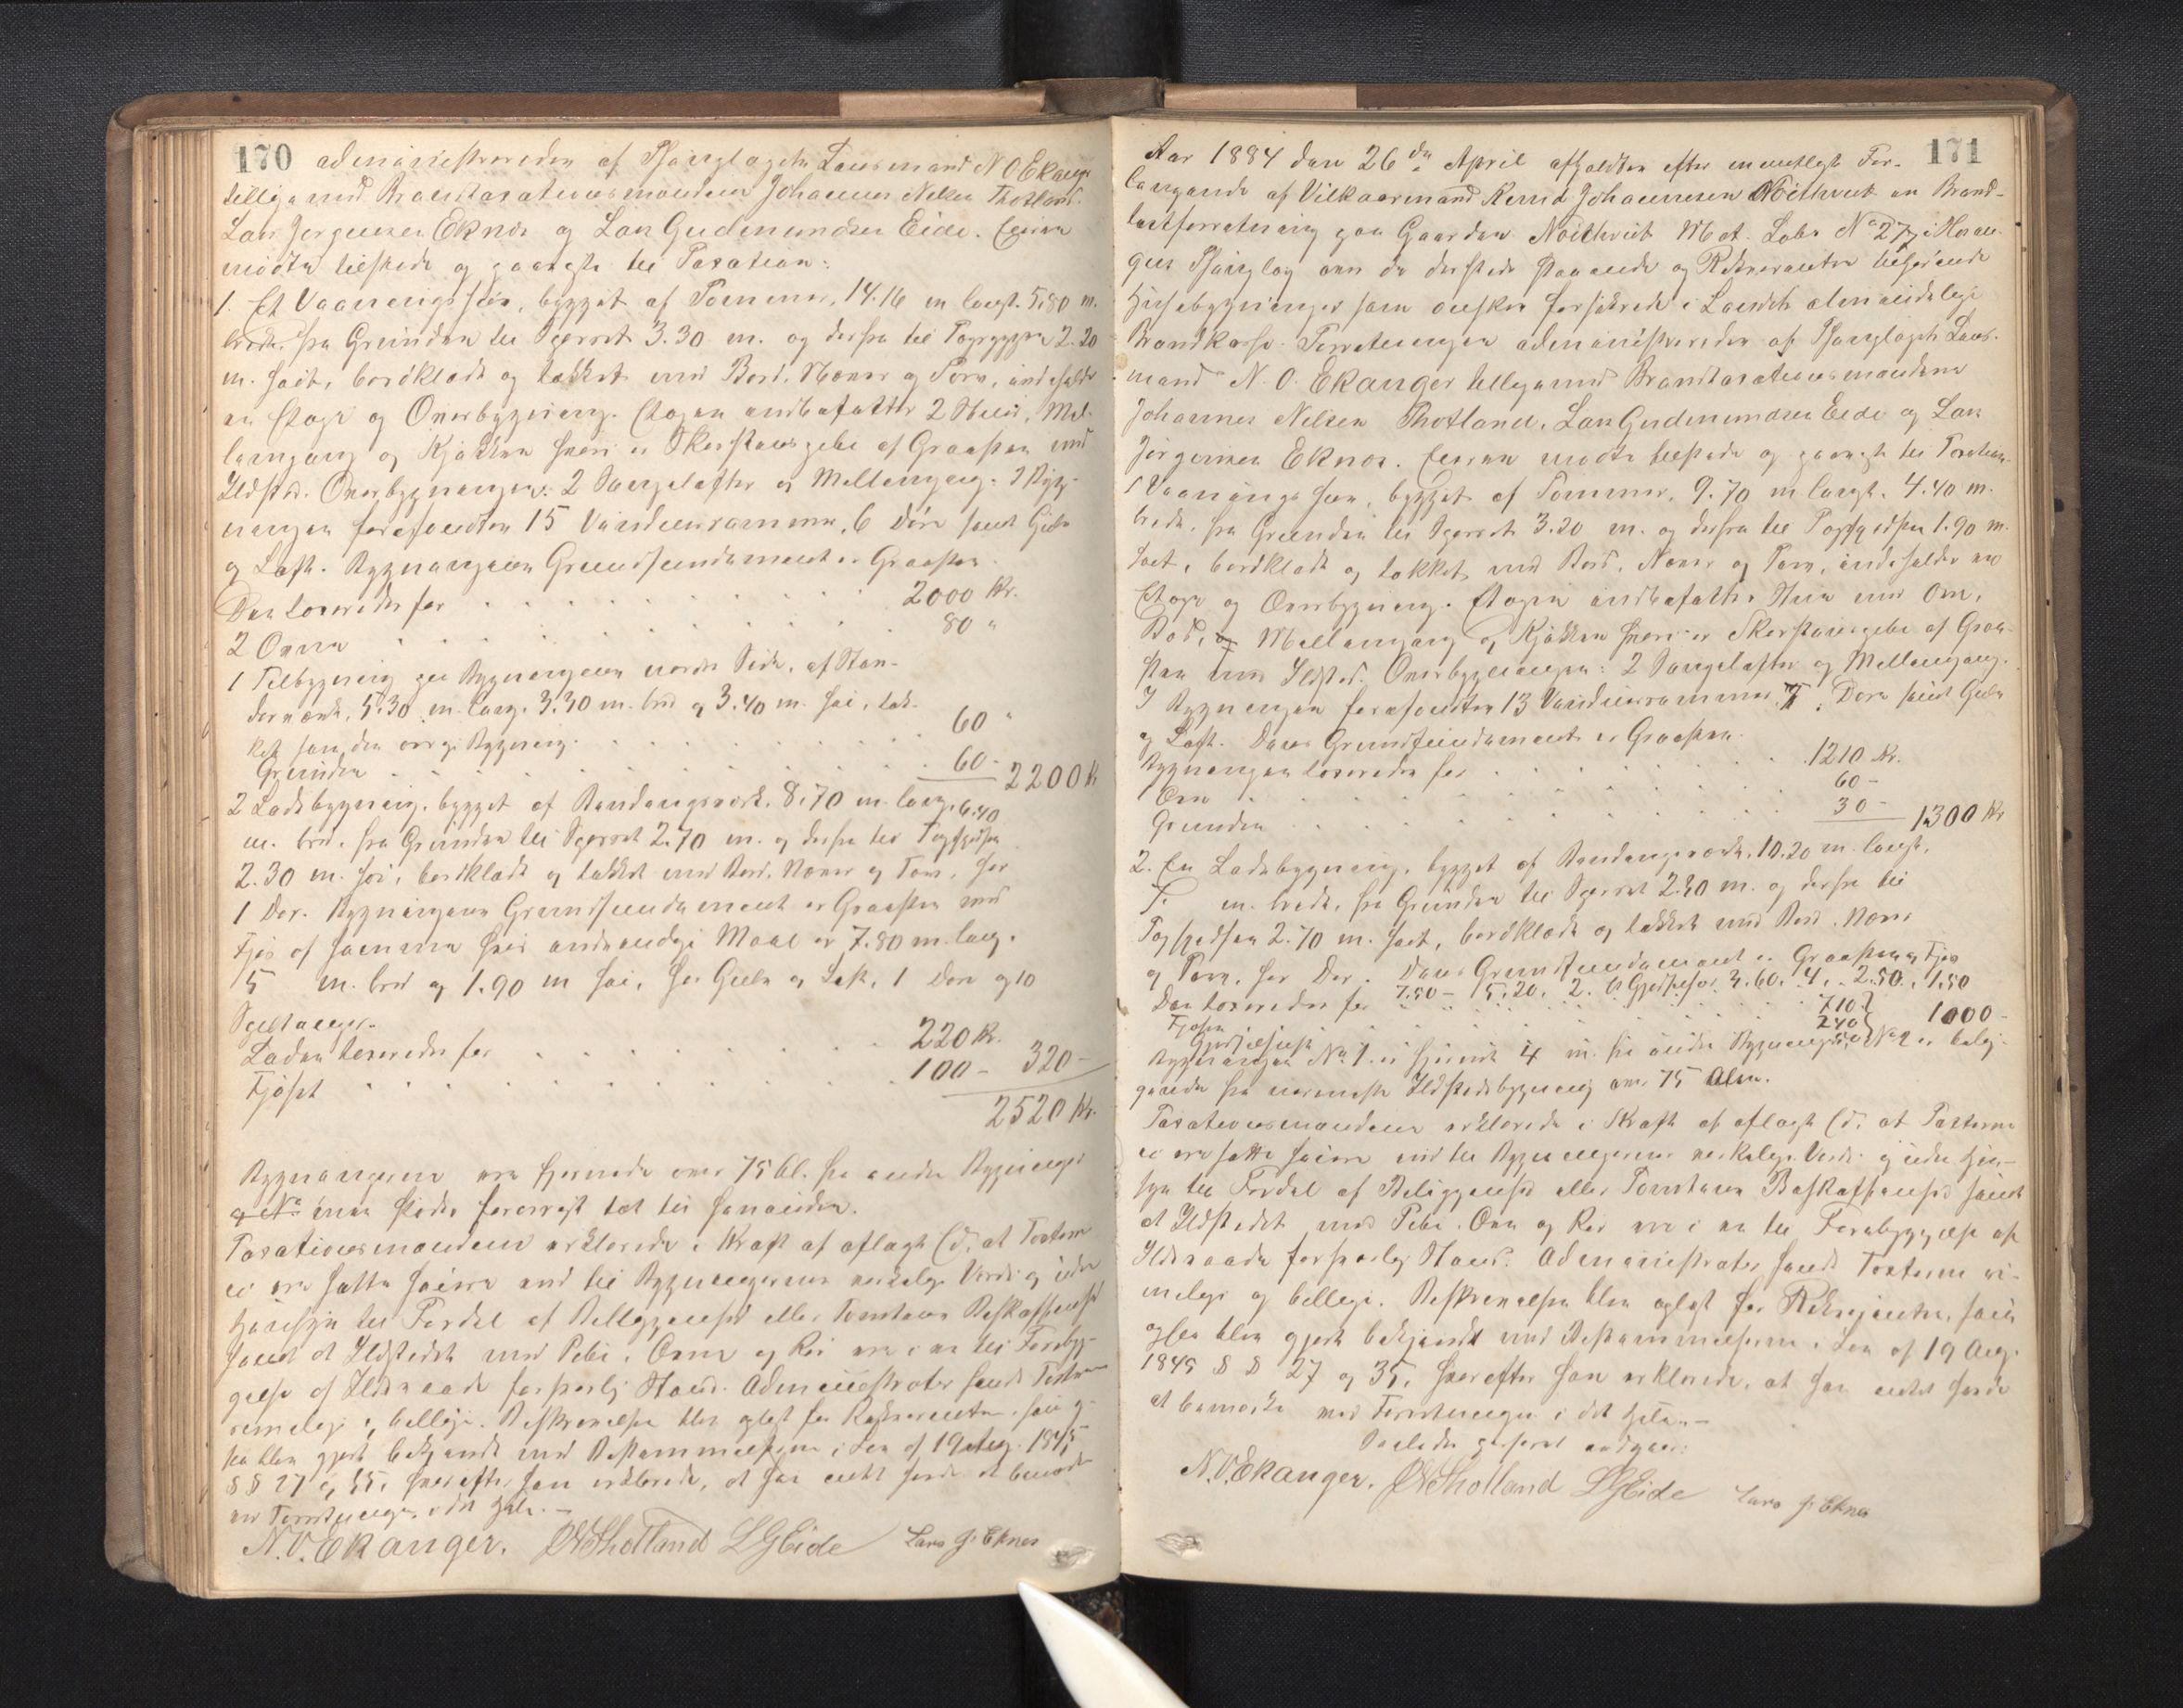 170
administreredes af Thinglagets Lensmand N O Ekanger
tilligemed Brandtaxationsmændene Johannes Nelsen Thotland.
Lars Jørgensen Eknes og Lars Gudmundsen Eide. Eieren
mødte tilstede og gaaes til Taxation:
1. Et Vaaningshus, bygget af Tømmer, 14.16 m langt. 5.80 m.
bredt, fra Grunden til Gesvset 3.30 m. og derfra til Tagryggen 2.20
m. høit, bordklædt og tækket med Bord, Næver og Torv, indeholder
en Etage og Overbygning. Etagen indbefatter 2 Stuer, Mel-
lemgang og Kjøkken hvori er Skorstenspibe af Graasten med
Ildsted. Overbygningen: 2 Sængelofter og Mellemgang. I Byg-
ningen forefindtes 15 Vinduesrammer, 6 Døre samt Gulv
og Loft. Bygningens Grundfundament er Graasten.
Den taxeredes for 2000 Kr.
2 Ovne 80 "
1 Tilbygning paa Bygningens nordre Side, af Stan-
derværk, 5.30 m. lang. 3.30 m. bred og 3.40 m. høi, tæk-
ket som den øvrige Bygning. 60 "
Grunden 60 - 2200 Kr
2 Ladebygning, bygget af Bindingsværk, 8.70 m. lang, 6.40
m. bred, fra Grunden til Gesvset 2.70 m. og derfra til Tagspidsen
2.30 m. høi, bordklædt og tækket med Bord, Næver og Torv, har
1 Dør. Bygningens Grundfundament er Graasten med
Fjøs af samme hvis indvendige Maal er 7.80 m. lang.
5 m. bred og 1.90 m høi, har Gulv og Loft, 1 Dør og 10

Laden taxeredes for 220 Kr.
Fjøset 100 - 320 -
2520 Kr.
Bygningerne ere fjernede over 75 Al. fra andre Bygninger
Taxationsmændene erklærede i Kraft af aflagt Ed, at Taxterne
ei ere satte høiere end til Bygningernes virkelige Værdi og uden
Hensyn til Fordel af Beliggenhed eller Tomtens Beskaffenhed
samt at Ildstedet med Pibe, Ovne og Rør ere i en til Forebyg-
gelse af Ildsvaade forsvarlig Stand. Administrator fandt Taxterne
rimelige og billige. Beskrivelsen blev oplæst for Rekvirenten, som og-
saa blev gjort bekjendt med Bestemmelserne i Lov af 19 Aug. 1845
§ § 27 og 35, hvorefter han erklærede, at han intet havde at bemærke
ved Forretningen i det Hele. -
N. O. Ekanger. JNThotland LGEide Lars J. Eknes
171
Aar 1884 den 26de April afholdtes efter mundtligt For-
langende af Vilkaarmand Knud Johannesen Nøithveit en Brand-
taxtforretning paa Gaarden Nøithveit Mat. Løbe No 27 i Hosan-
gers Thinglag over de dersteds staaende og Rekvirenten tilhørende
Husebygninger som ønskes forsikrede i Landets almindelige
Brandkasse. Forretningen administreredes af Thinglagets Lens-
mand N. O. Ekanger tilligemed Brandtaxationsmændene
Johannes Nelsen Thotland, Lars Gudmundsen Eide og Lars
Jørgensen Eknes. Eieren mødte tilstede og gaaes til Taxation.
1 Vaaningshus, bygget af Tømmer, 9.70 m langt, 4.40 m.
bredt, fra Grunden til Gesvset 3.20 m. og derfra til Tagspidsen 1.90 m.
høit, bordklædt og tækket med Bord, Næver og Torv, indeholder en
Etage og Overbygning. Etagen indbefatter Stue med Ovn,
Bod, Mellemgang og Kjøkken hvori er Skorstenspibe af Graa-
sten med Ildsted. Overbygningen: 2 Sængelofter og Mellemgang.
I Bygningen forefindtes 13 Vinduesrammer, 7 Døre samt Gulv
og Loft. Dens Grundfundament er Graasten.
Bygningen taxeredes for 1210 Kr.
Ovn 60 -
Grunden 30 - 1300 Kr
2. En Ladebygning, bygget af Bindingsværk, 10.20 m. langt,
m. bredt, fra Grunden til Gesvset 2.20 m. og derfra til
Tagspidsen 2.70 m. høit, bordklædt og tækket med Bord, Næver
og Torv, har Dør. Dens Grundfundament er Graasten og Fjøs
7.50 - 5.20. 2. 3.60. 4. 2.50. 1.50
Den taxeredes for 710
Fjøsen 240 1000 -
Bygningen No 1 er fjernet 4 m. fra andre Bygninger No 2 er belig-
gende fra nærmeste Ildstedsbygning over 75 Alen.
Taxationsmændene erklærede i Kraft af aflagt Ed, at Taxterne
ei ere satte høiere end til Bygningernes virkelige Værdi og uden Hen-
syn til Fordel af Beliggenhed eller Tomtens Beskaffenhed samt
at Ildstedet med Pibe, Ovn og Rør ere i en til Forebyggelse af
Ildsvaade forsvarlig Stand. Administrator fandt Taxterne ri-
melige og billige. Beskrivelsen blev oplæst for Rekvirenten, som
ogsaa blev gjort bekjendt med Bestemmelserne i Lov af 19 Aug.
1845 § § 27 og 35, hvorefter han erklærede, at han intet havde
at bemærke ved Forretningen i det Hele. -
Saaledes passeret vidner:
N. O. Ekanger. JNThotland LGEide Lars J. Eknes